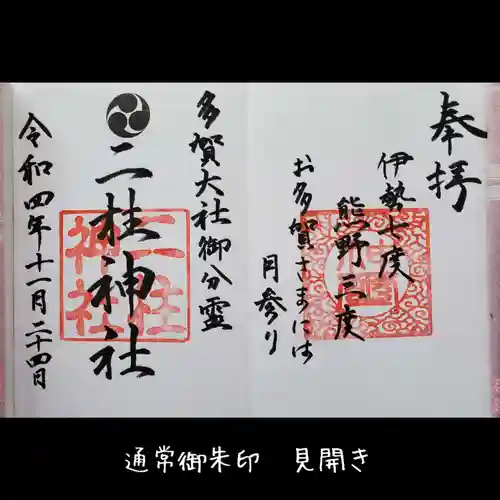 奉拝
伊勢七度
熊野三度
お多賀さまには
月参り
多賀大社御分霊
二柱神社
二柱
神社
令和四年十一月二十四日
通常御朱印 見開き